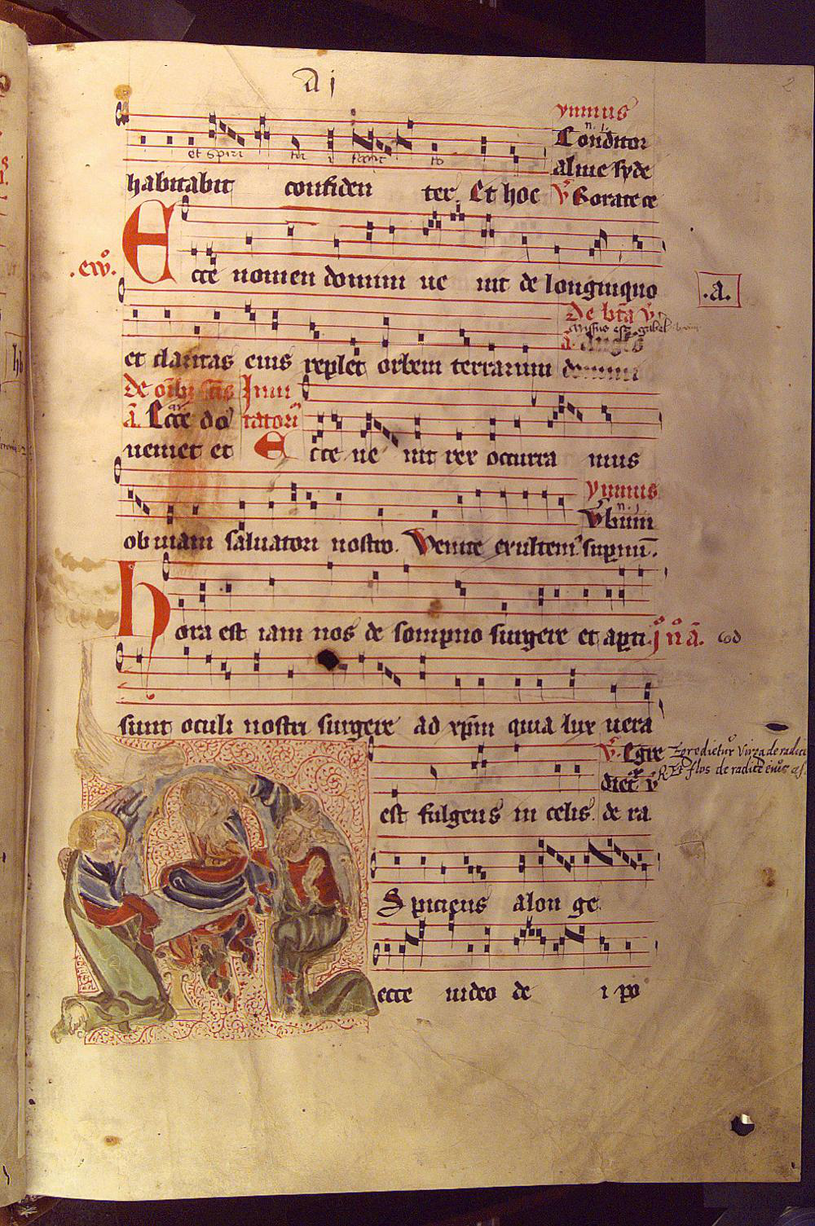 A j
2
ymnus
et spiri tu i
Conditor
alme syde
habitabit confiden ter. Et hoc V Rorate ce
.eu̅o.
Ecce nomen domini ue nit de longinquo
.a.
De bt̅a v̊.
et claritas eius replet orbem terrarum domini
de oi̅b s̅c̅is Inui
a̅. Ecce do tatori̅
ueniet et Ecce ue nit rex occurra mus
ymnus
n. j.
Vbum
obuiam saluatori nostro. Venite exultem̅ supnu̅.
Hora est iam nos de sompno surgere et apti j n̊ a̅.
sunt oculi nostri surgere ad xp̅m quia lux uera
V̊. Egre
diet̅
Egredietur virga de radice
Et flos de radice eius
est fulgens in celis. de ra
Aspiciens alon ge
ecce uideo de i po